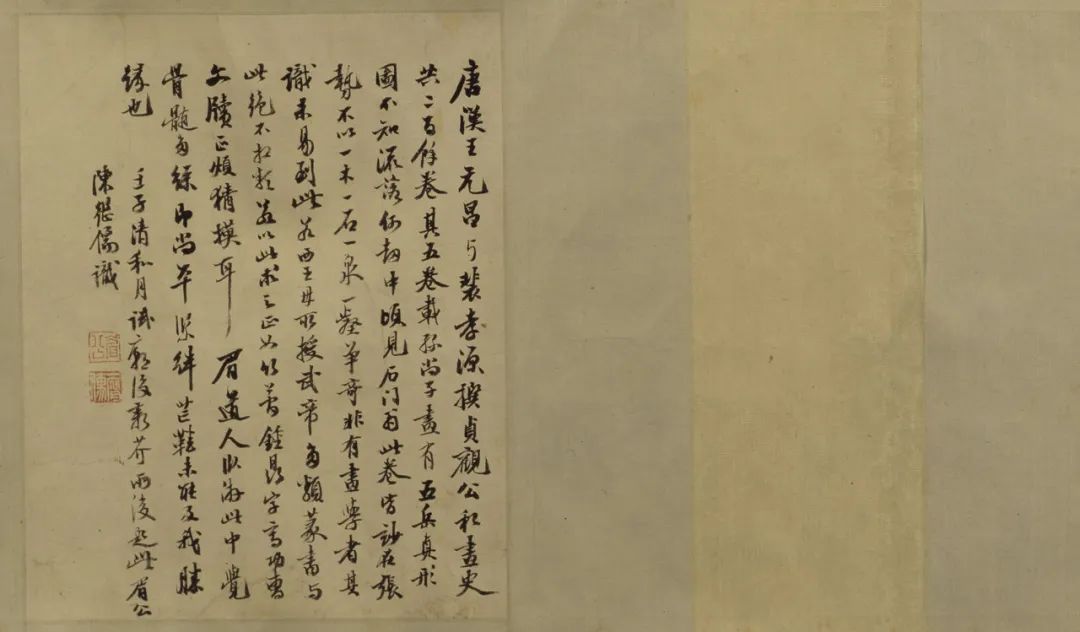 唐漢王元昌與裴孝源撰貞觀公私畫史
共二百餘卷其五卷載孫尚子畫有五岳真形
圖不知流落何劫中頃見石門翁此卷皆妙在張
勢不以一木一石一泉一壑爭奇非有畫學者其
識未易到此若西王母所授武帝多類篆書與
此絕不相類若以此求之正如以
文牘正煩猜摸耳 眉道人臥游此中覺
骨髓多綠即尚平 芒鞋未能及我勝
緣也
壬子清和月試 後 芥雨後題此眉公
陳繼儒識